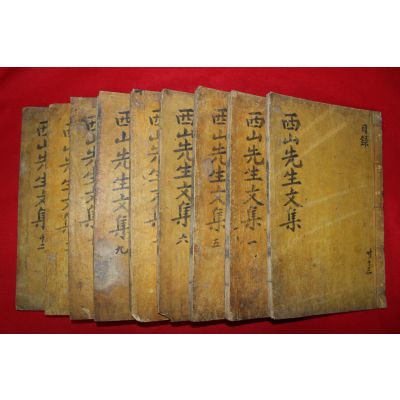 目錄
西山先生文集
共十三
西山先生文集 一
西山先生文集 五
西山先生文集 六
西山先生文集
西山先生文集 九
西山先生文集
西山先生文集
西山先生文集 十二